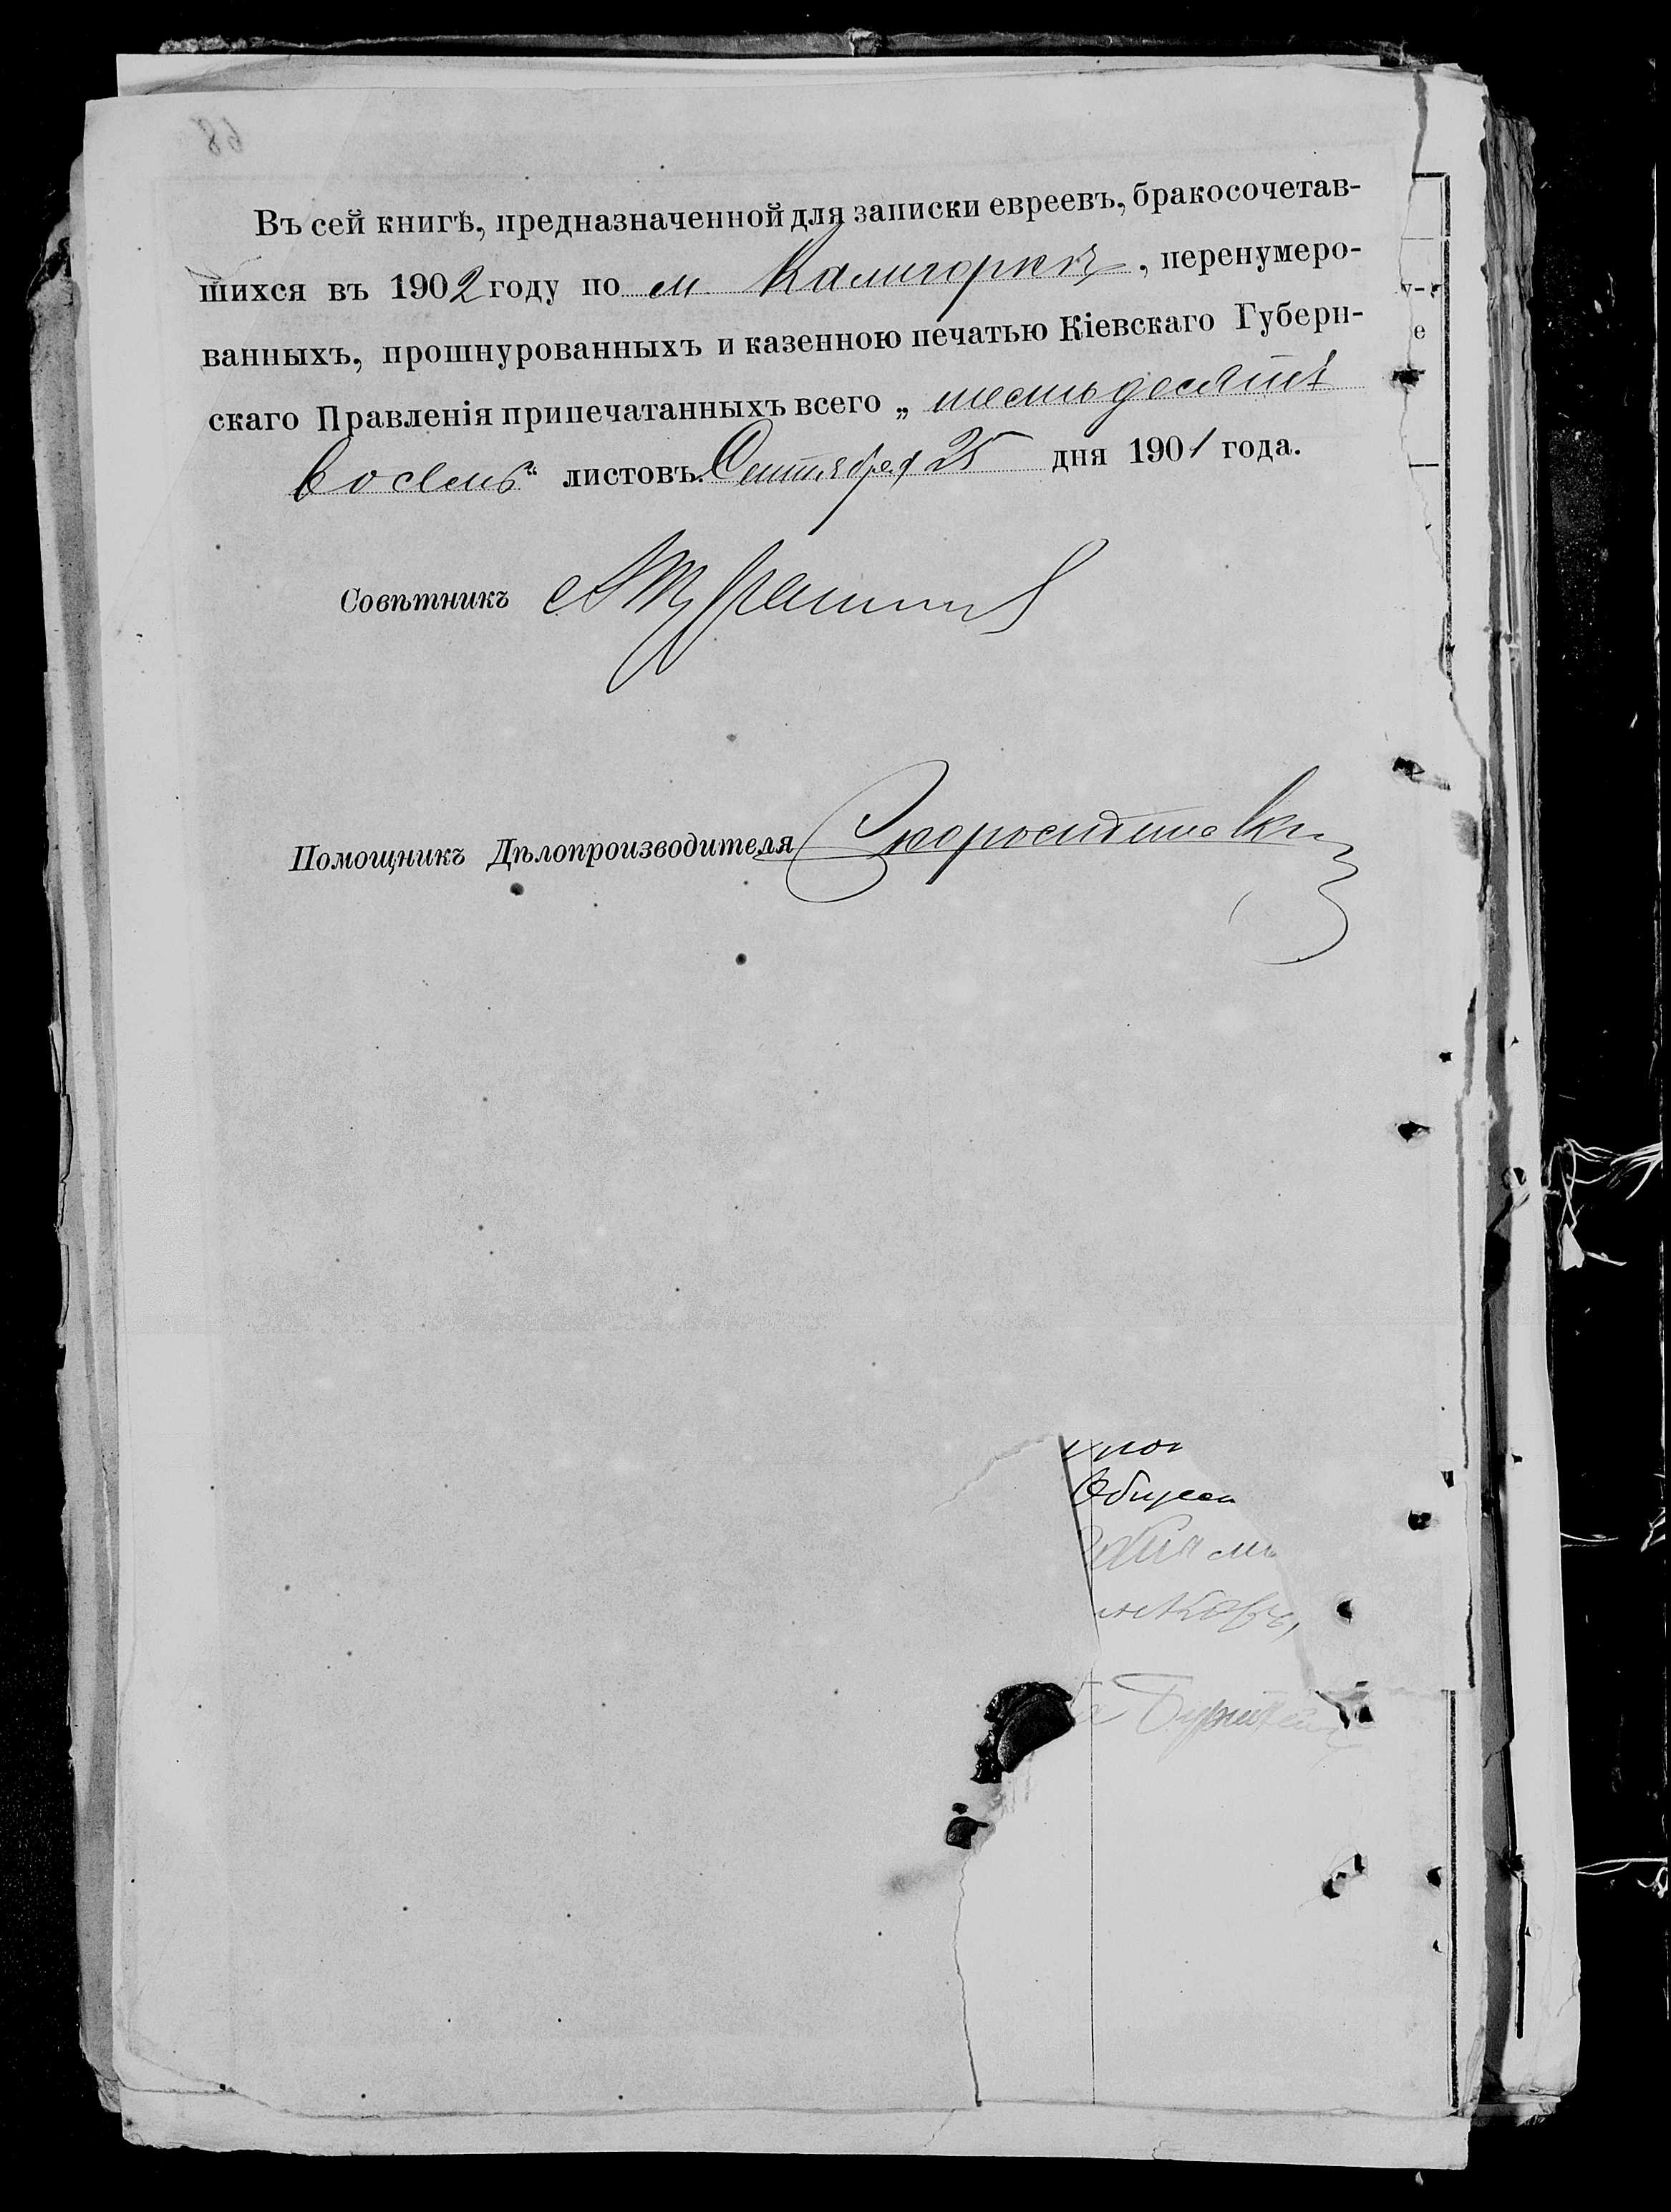 Въ сей книгѣ, предназначенной для записки евреевъ, бракосочетав-
шихся въ 1902 году по м Калигоркѣ, перенумеро-
ванныхъ, прошнурованныхъ и казенною печатью Кіевскаго Губерн-
скаго Правленія припечатанныхъ всего „ шестьдесятъ
восемь“ листовъ. Сентября 25 дня 1901 года.
Совѣтникъ
Помощникъ Дѣлопроизводителя
68